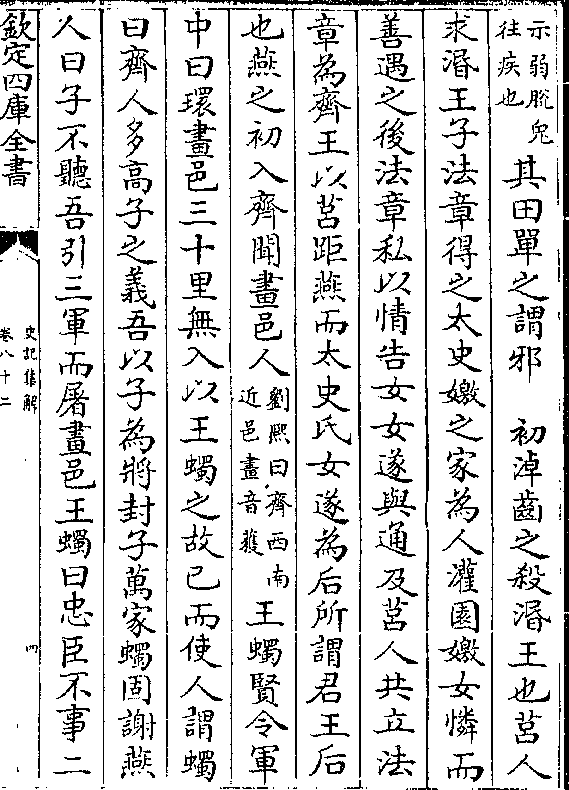 示弱脫兔
往疾也
其田單之謂邪　初淖齒之殺湣王也莒人
求湣王子法章得之太史嬓之家為人灌園嬓女憐而
善遇之後法章私以情告女女遂與通及莒人共立法
章為齊王以莒距燕而太史氏女遂為后所謂君王后
也燕之初入齊聞畫邑人
劉熙曰齊西南
近邑畫音獲
王蠋賢令軍
中曰環畫邑三十里無入以王蠋之故已而使人謂蠋
曰齊人多高子之義吾以子為將封子萬家蠋固謝燕
人曰子不聽吾引三軍而屠畫邑王蠋曰忠臣不事二
欽定四庫全書
史記集解
卷八十二
四